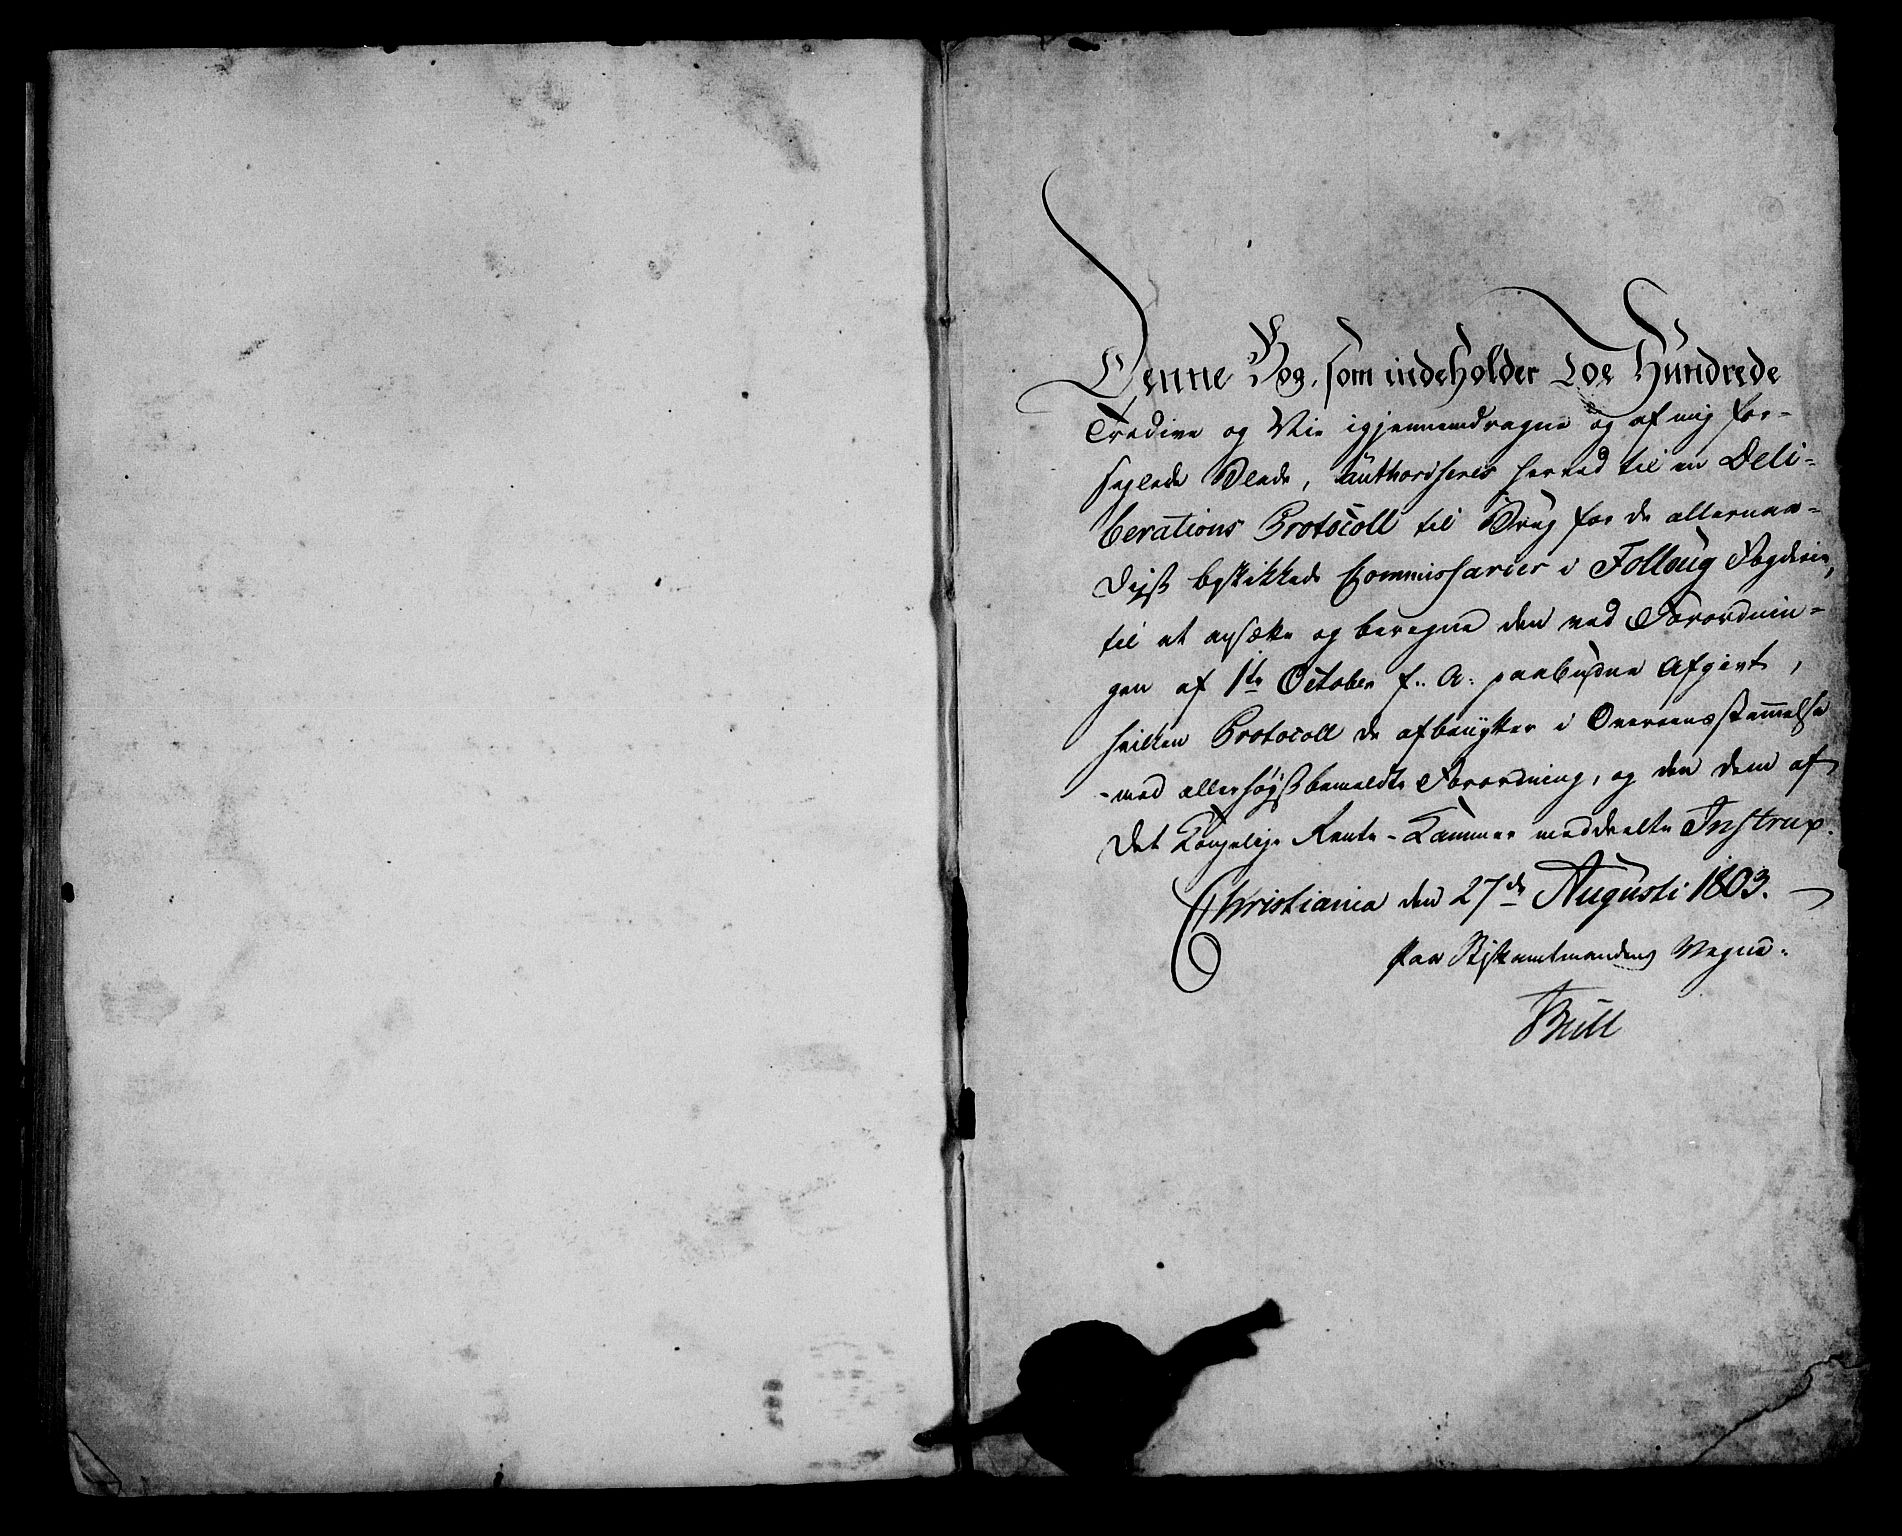 Denne Bog, som indeholder Toe Hundrede
Tredive og Nie igjennemdragne og af mig for-
seglede Blade, authoriseres herved til en Deli-
berations Protocoll til Brug for de allernaa-
digst beskikkede Commissarier i Follaug Fogderie,
til at ansætte og beregne den ved Forordnin-
gen af 1te October f. A. paabudne Afgivt,
hvilken Protocoll de afbenytter i Overeensstemmelse
med allerhøistbemeldte Forordning, og den dem af
Det Kongelige Rente-Kammer meddeelte Instrux.
Christiania den 27de Augusti 1803.
paa Stiftamtmandens Vegne.
Bull